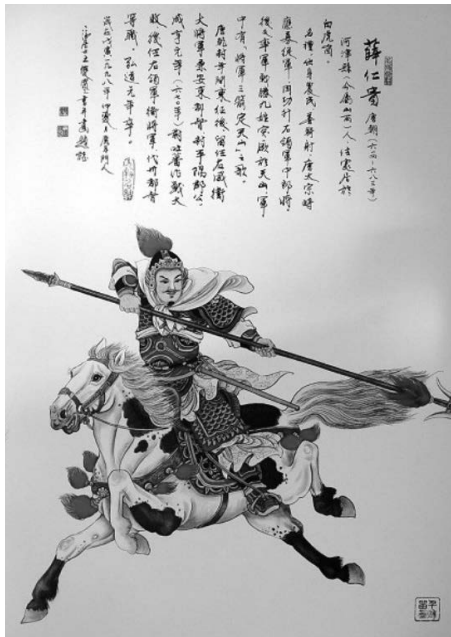 薛仁貴 唐朝(六一四-六八三年)
河津縣(今屬山西)人 住寒居於
白虎崗。
名禮,出身農民,善騎射,唐太宗時
應募從軍,因功升右領軍中郎將。
後又率軍戰勝九姓突厥於天山,軍
中有“將軍三箭定天山”之歌。
唐乾封年間東征後,留任右威衛
大將軍兼安東都督封平陽郡公。
咸亨元年(六七〇年)對吐蕃作戰大
敗,後任右領軍衛將軍,代州都督
等職。弘道元年卒。
歲在戊寅一九九八年仲夏